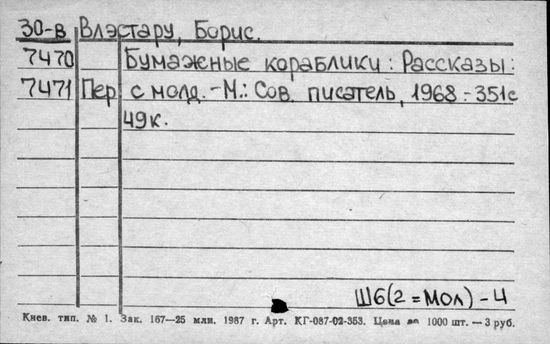 30-в Влэстару, Борис.
7470 Бумажные кораблики : Рассказы :
7471 Пер с молд. - М.: Сов. писатель, 1968. - 351с
49к.
Ш6(2=Мол) - 4
Киев. тип. № 1. Зак. 167—25 млн. 1987 г. Арт. КГ-087-02-353. Цена за 1000 шт. — 3 руб.